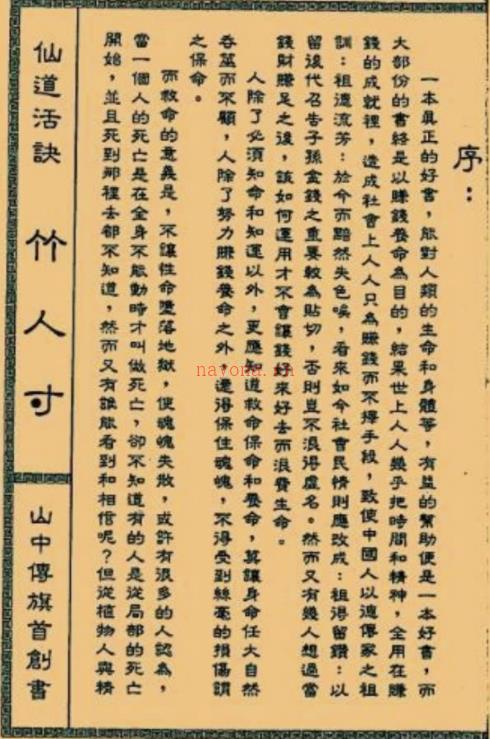 序：
一本眞正的好書，能對人類的生命和身體等，有益的幫助便是一本好書，而
大部份的書終是以賺錢養命為目的，結果世上人人幾乎把時間和精神，全用在賺
錢的成就裡，造成社會上人人只為賺錢而不擇手段，致使中國人以德傳家之祖
訓：祖德流芳：於今而黯然失色唉，看來如今社會民情則應改成：祖得留鑽：以
留後代召告子孫金錢之重要較為貼切，否則豈不浪得虛名。然而又有幾人想過當
錢財賺足之後，該如何運用才不會讓錢好來好去而浪費生命。
人除了必須知命和知運以外，更應知道救命保命和養命，莫讓身命任大自然
吞莖而不顧，人除了努力賺錢養命之外，還得保住魂魄，不得受到絲毫的損傷謂
之保命。
而救命的意義是，不讓性命墮落地獄，使魂魄失散，或許有很多的人認為，
當一個人的死亡是在全身不能動時才叫做死亡，卻不知道有的人是從局部的死亡
開始，並且死到那裡去都不知道，然而又有誰能看到和相信呢？但從植物人與精
仙道活訣
竹人寸
山中傳旗首創書
navona.com